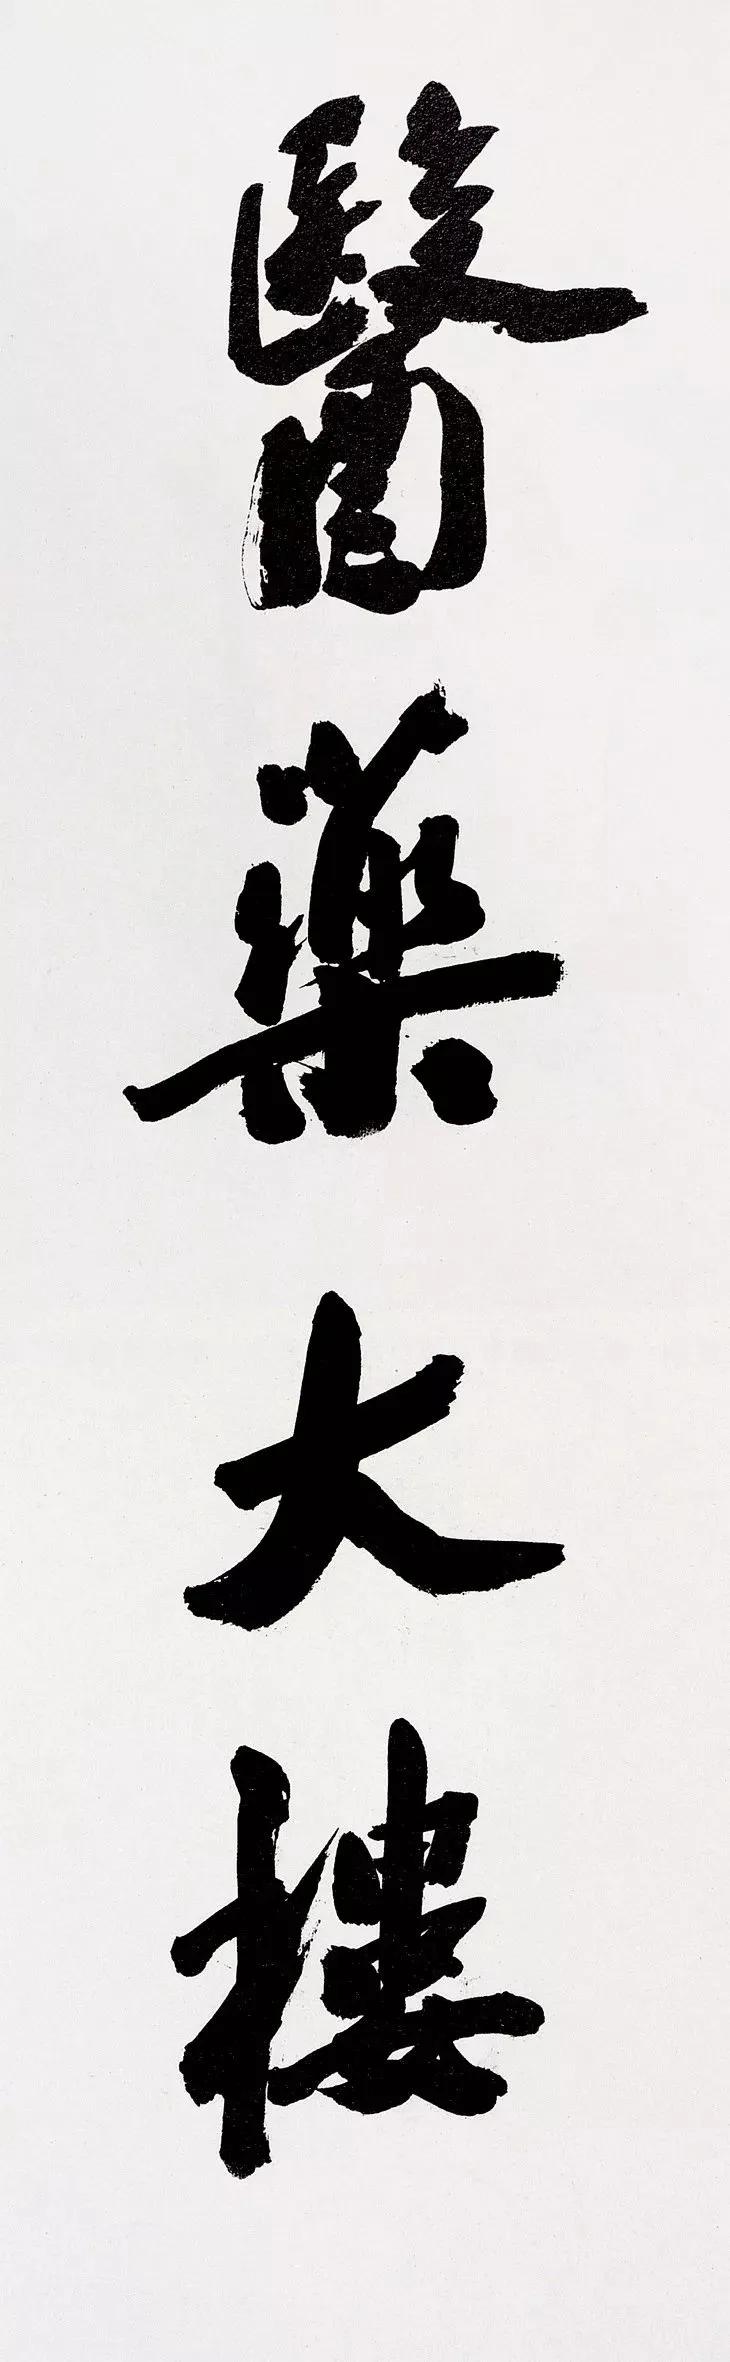 醫藥大樓